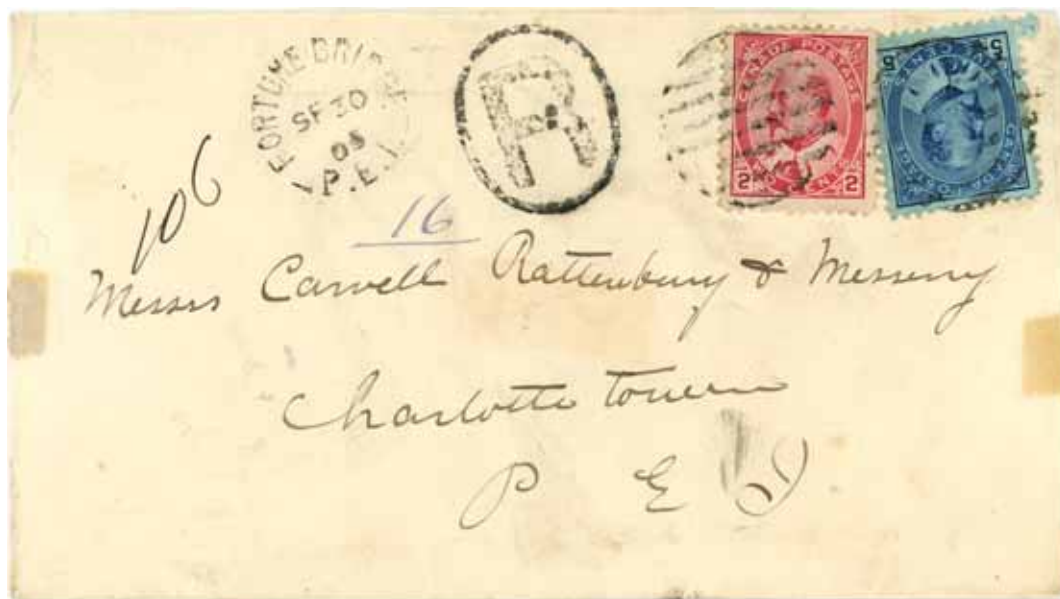 FORTUNE BRIDGE
SP 30
P.E.I.
R
CANADA POSTAGE
2 CENTS 2
CANADA POSTAGE
5 FIVE CENTS 5
106
16
Messrs Carvell Rattenbury & Messervy
Charlottetown
P E I